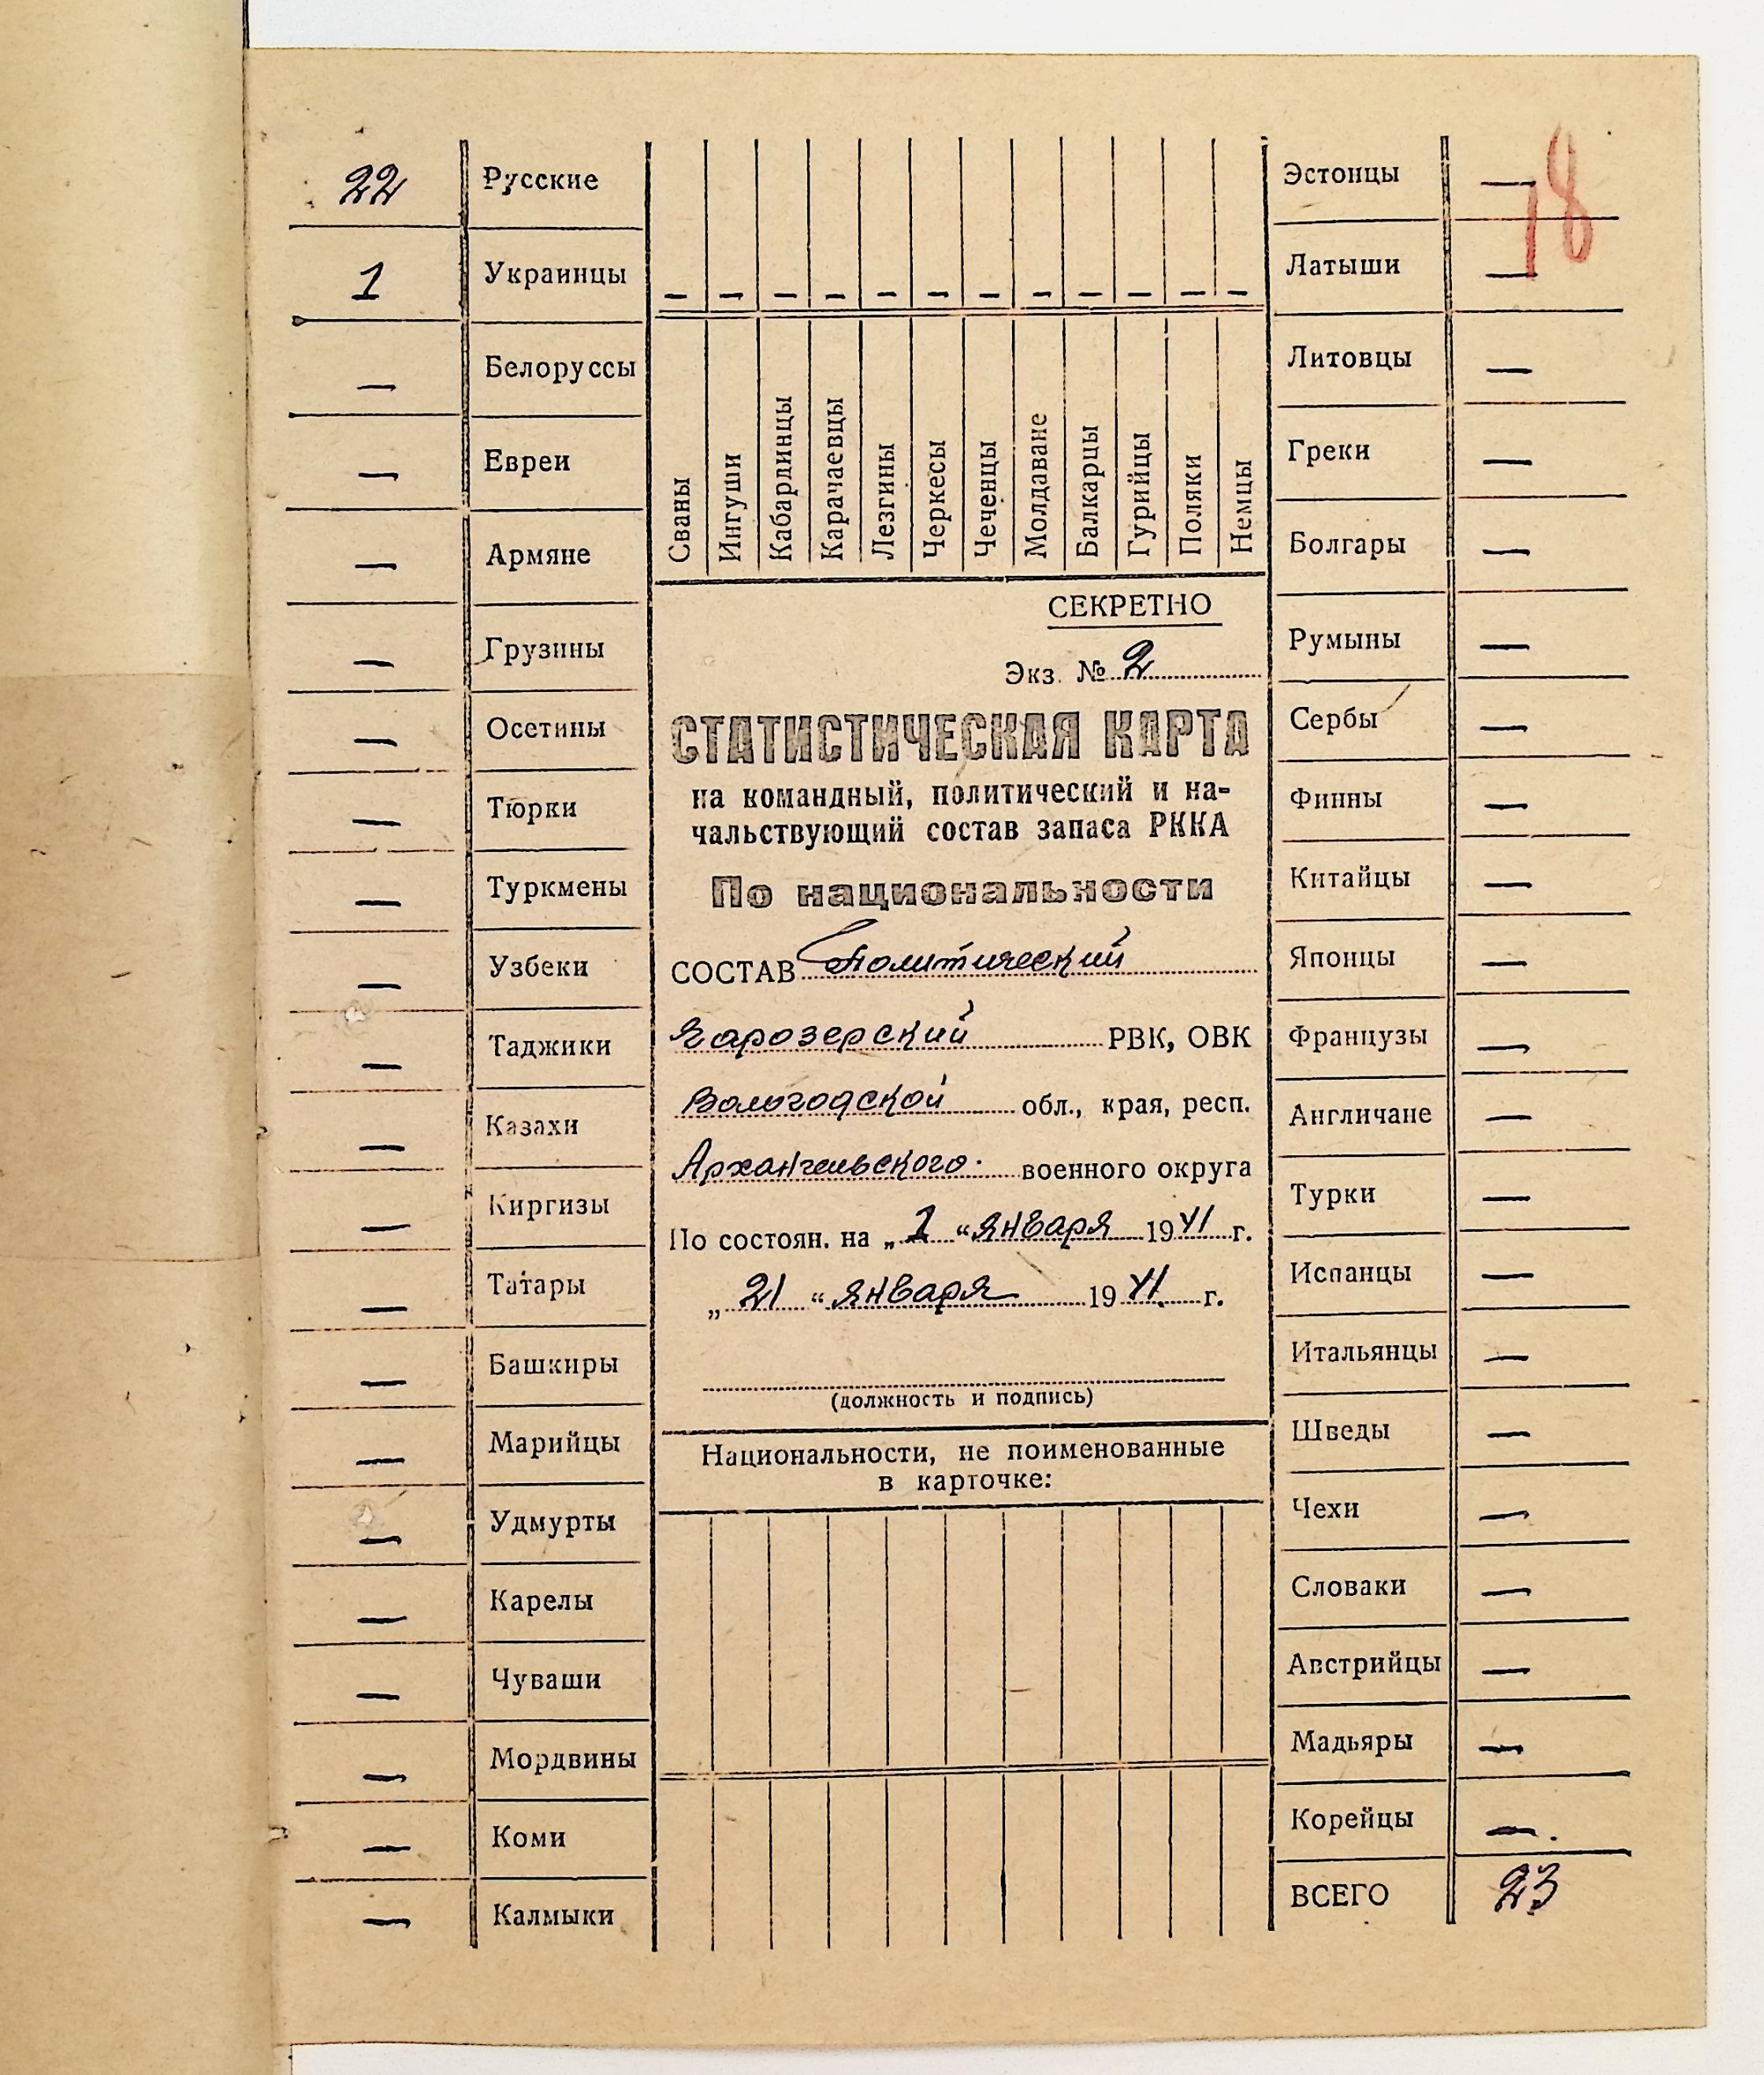 78
22 Русские
1 Украинцы
— Белоруссы
— Евреи
— Армяне
— Грузины
— Осетины
— Тюрки
— Туркмены
— Узбеки
— Таджики
— Казахи
— Киргизы
— Татары
— Башкиры
— Марийцы
— Удмурты
— Карелы
— Чуваши
— Мордвины
— Коми
— Калмыки
— — — — — — — — — — — —
Сваны
Ингуши
Кабардинцы
Карачаевцы
Лезгины
Черкесы
Чеченцы
Молдаване
Балкарцы
Гурийцы
Поляки
Немцы
СЕКРЕТНО
Экз. № 2
СТАТИСТИЧЕСКАЯ КАРТА
на командный, политический и на-
чальствующий состав запаса РККА
По национальности
СОСТАВ Политический
Чарозерский РВК, ОВК
Вологодской обл., края, респ.
Архангельского военного округа
По состоян. на „1“ января 1941 г.
„21“ января 1941 г.
(должность и подпись)
Национальности, не поименованные
в карточке:
Эстонцы —
Латыши —
Литовцы —
Греки —
Болгары —
Румыны —
Сербы —
Финны —
Китайцы —
Японцы —
Французы —
Англичане —
Турки —
Испанцы —
Итальянцы —
Шведы —
Чехи —
Словаки —
Австрийцы —
Мадьяры —
Корейцы —
ВСЕГО 23